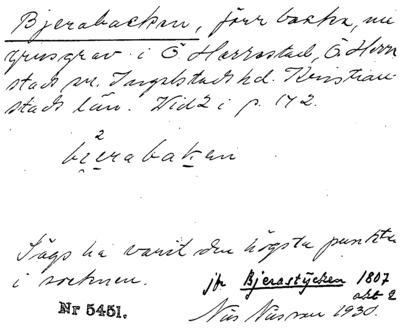 Bjerabacken, förr backe, nu
grusgrav i Ö. Herrestad, Ö. Herre
stads sn. Ingelstads hd. Kristian
stads län. Vid 2 i p. 172.
2
bi̯erabaken
Sägs ha varit den högsta punkten
i socknen.
jfr Bjerastycken 1807
akt 2
Nr 5451.
Nils Nilsson 1930.